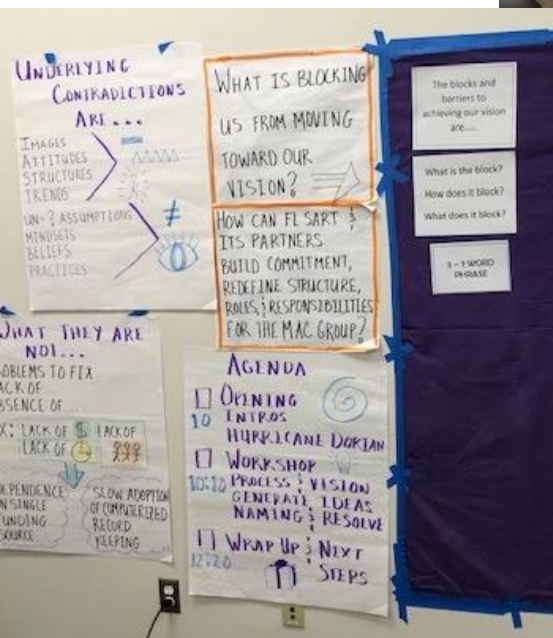 UNDERLYING
CONTRADICTIONS
ARE...
IMAGES
ATTITUDES
STRUCTURES
TRENDS
UN-? ASSUMPTIONS
MINDSETS
BELIEFS
PRACTICES
WHAT IS BLOCKING
US FROM MOVING
TOWARD OUR
VISION?
HOW CAN FL SART &
ITS PARTNERS
BUILD COMMITMENT,
REDEFINE STRUCTURE,
ROLES, & RESPONSIBILITIES
FOR THE MAC GROUP?
The blocks and
barriers to
achieving our vision
are.....
What is the block?
How does it block?
What does it block?
3 – 7 WORD
PHRASE
WHAT THEY ARE
NOT...
OBLEMS TO FIX
ACK OF
BSENCE OF...
X: LACK OF $ LACK OF
LACK OF
EPENDENCE
N SINGLE
UNDING
OURCE
SLOW ADOPTION
OF COMPUTERIZED
RECORD
KEEPING
AGENDA
OPENING
10 INTROS
HURRICANE DORIAN
WORKSHOP
10:10 PROCESS & VISION
GENERATE IDEAS
NAMING & RESOLVE
WRAP UP & NEXT
12:20 STEPS